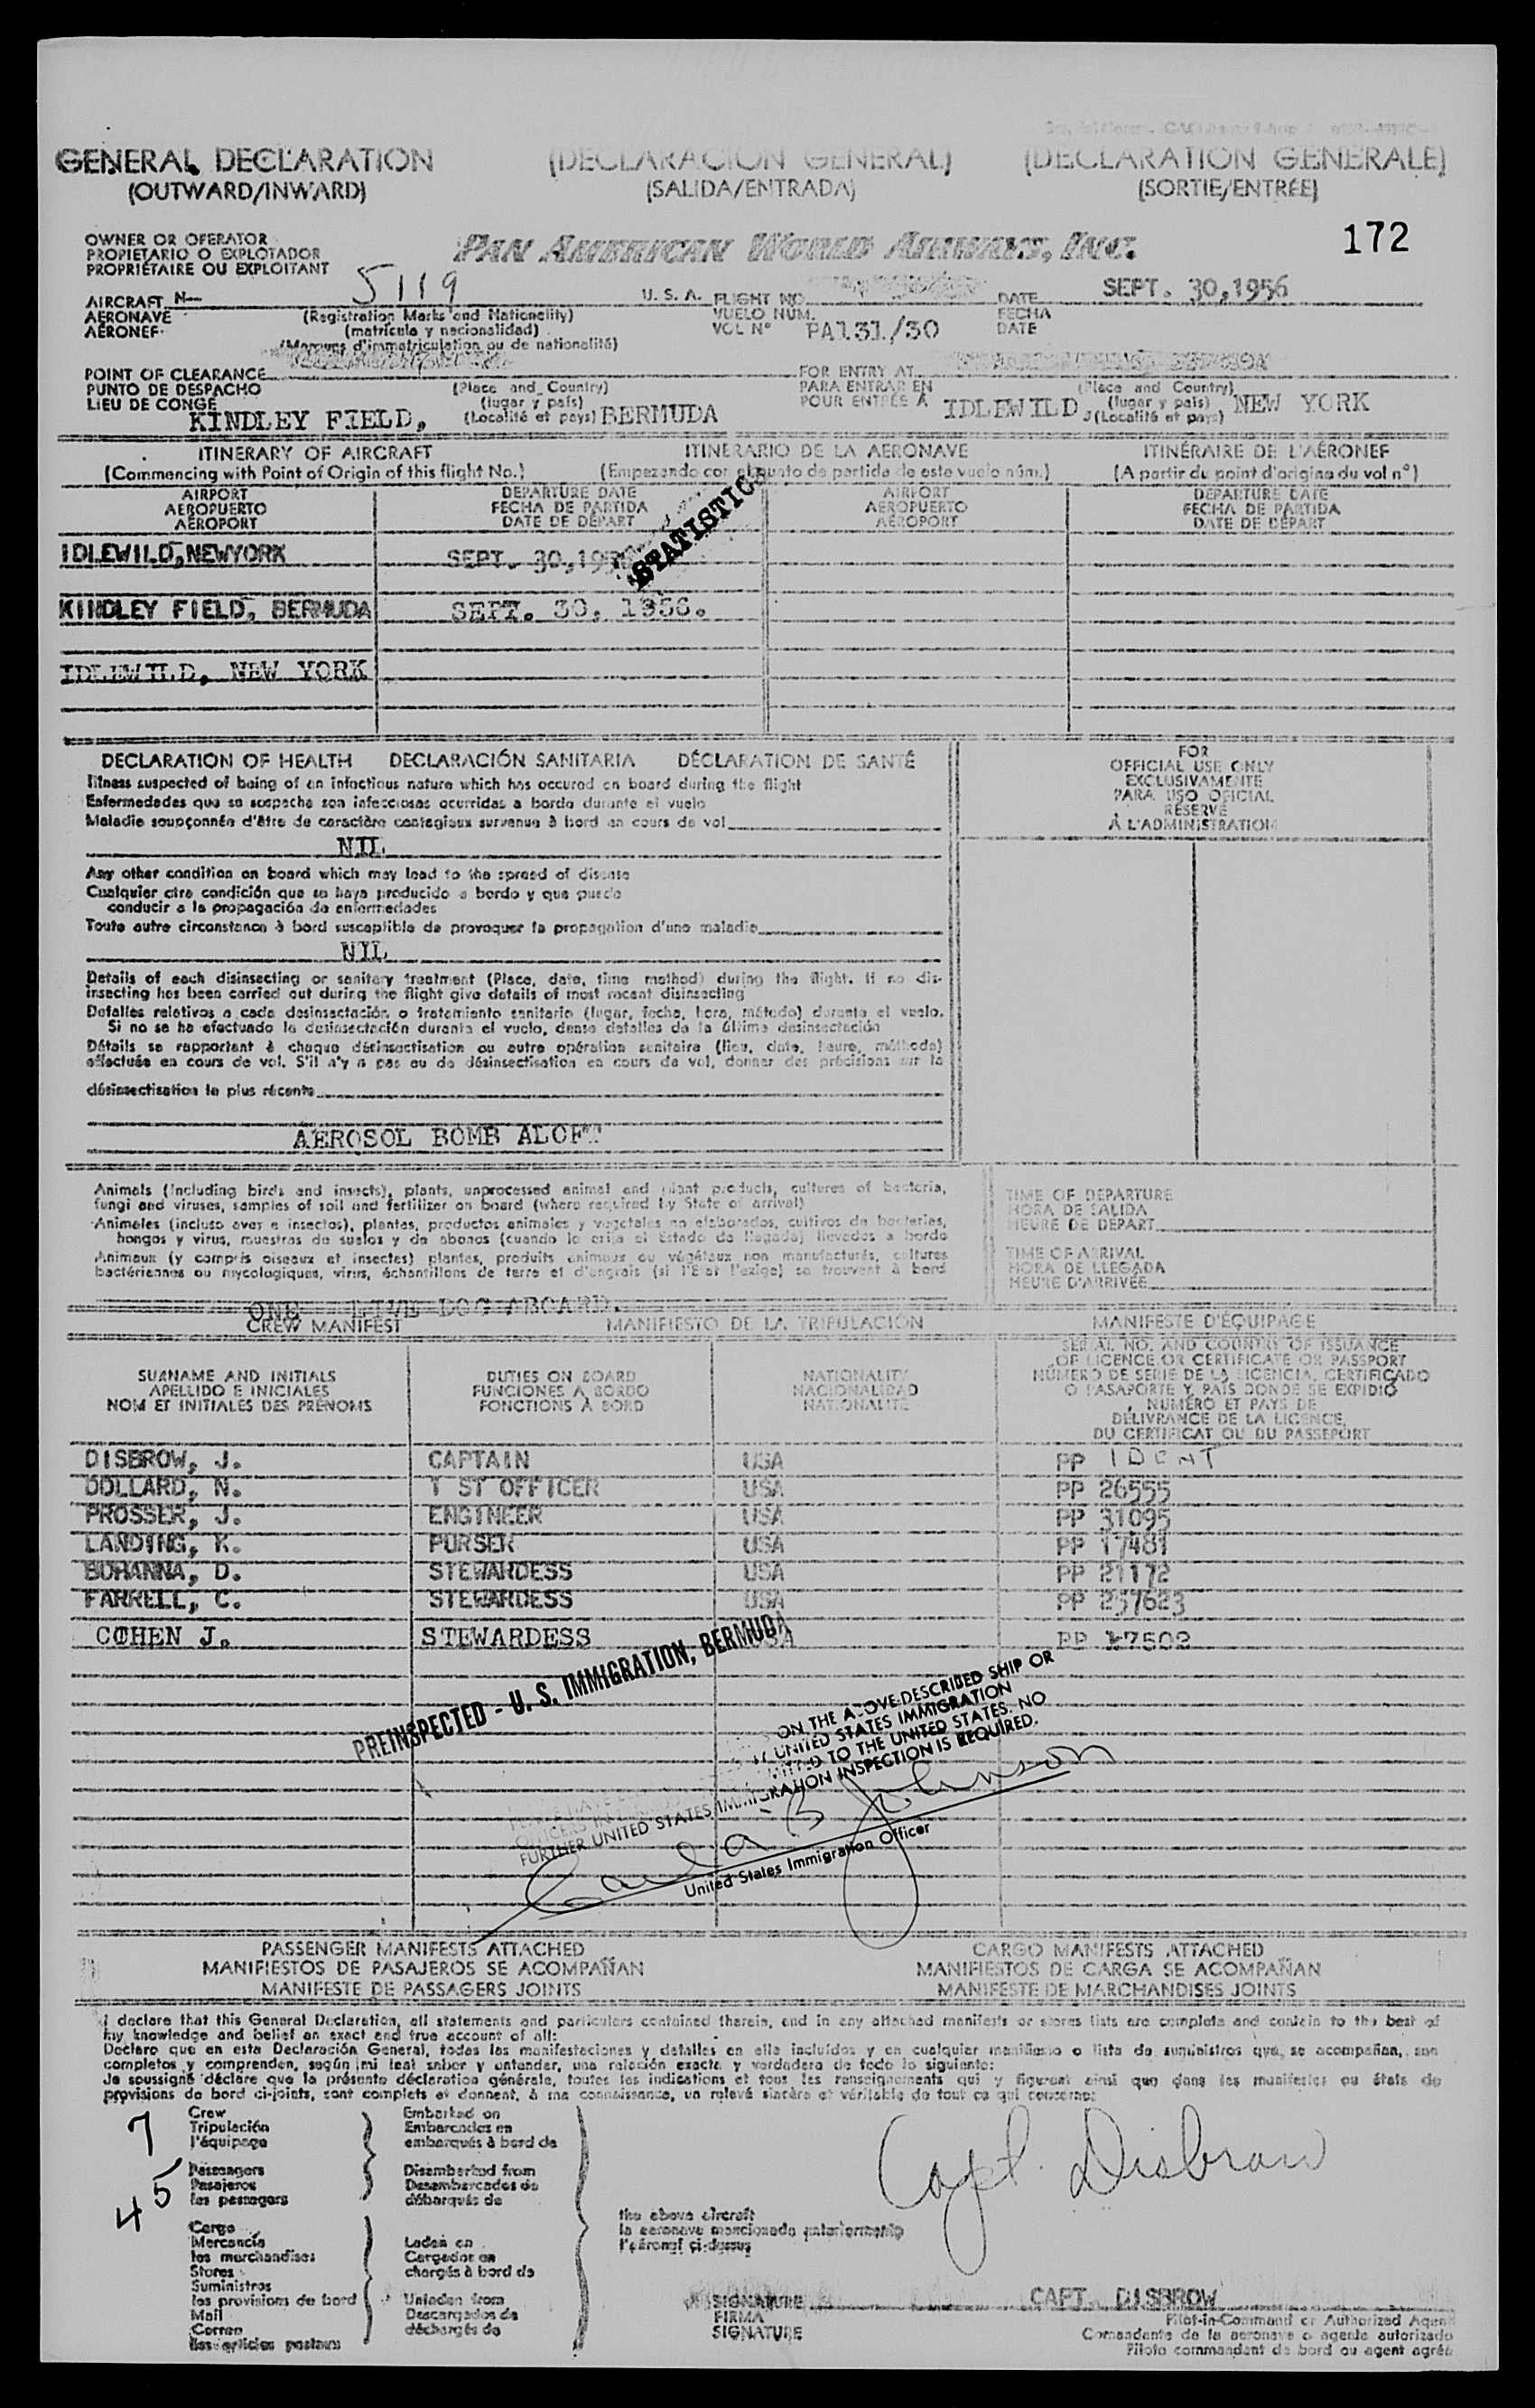 GENERAL DECLARATION (DECLARACION GENERAL) (DECLARATION GENERALE)
(OUTWARD/INWARD) (SALIDA/ENTRADA) (SORTIE/ENTRÉE)
172
OWNER OR OPERATOR
PROPIETARIO O EXPLOTADOR
PROPRIÉTAIRE OU EXPLOITANT
PAN AMERICAN WORLD AIRWAYS, INC.
AIRCRAFT N— 5119 U. S. A. FLIGHT NO. DATE SEPT. 30,1956
AERONAVE (Registration Marks and Nationality) VUELO NUM. FECHA
AÉRONEF (matrícula y nacionalidad) VOL N° PA131/30 DATE
(Marques d'immatriculation ou de nationalité)
POINT OF CLEARANCE FOR ENTRY AT
PUNTO DE DESPACHO (Place and Country) PARA ENTRAR EN (Place and Country)
LIEU DE CONGÉ (lugar y país) POUR ENTRÉE A (lugar y país)
KINDLEY FIELD, (Localité et pays) BERMUDA IDLEWILD, (Localité et pays) NEW YORK
ITINERARY OF AIRCRAFT ITINERARIO DE LA AERONAVE ITINÉRAIRE DE L'AÉRONEF
(Commencing with Point of Origin of this flight No.) (Empezando con el punto de partida de este vuelo núm.) (A partir du point d'origine du vol n°)
AIRPORT DEPARTURE DATE AIRPORT DEPARTURE DATE
AEROPUERTO FECHA DE PARTIDA AEROPUERTO FECHA DE PARTIDA
AÉROPORT DATE DE DÉPART AÉROPORT DATE DE DÉPART
STATISTICS
IDLEWILD,NEWYORK SEPT. 30,195
KINDLEY FIELD, BERMUDA SEPT. 30, 1956.
IDLEWILD, NEW YORK
DECLARATION OF HEALTH DECLARACIÓN SANITARIA DÉCLARATION DE SANTÉ
FOR
OFFICIAL USE ONLY
EXCLUSIVAMENTE
PARA USO OFICIAL
RÉSERVÉ
À L'ADMINISTRATION
Illness suspected of being of an infectious nature which has occured on board during the flight
Enfermedades que se sospecha son infecciosas ocurridas a bordo durante el vuelo
Maladie soupçonnée d'être de caractère contagieux survenue à bord en cours de vol
NIL
Any other condition on board which may lead to the spread of disease
Cualquier otra condición que se haya producido a bordo y que puede
conducir a la propagación de enfermedades
Toute autre circonstance à bord susceptible de provoquer la propagation d'une maladie
NIL
Details of each disinsecting or sanitary treatment (Place, date, time method) during the flight. If no dis-
insecting has been carried out during the flight give details of most recent disinsecting
Detalles relativos a cada desinsectación o tratamiento sanitario (lugar, fecha, hora, método) durante el vuelo.
Si no se ha efectuado la desinsectación durante el vuelo, dense detalles de la última desinsectación
Détails se rapportant à chaque désinsectisation ou autre opération sanitaire (lieu, date, heure, méthode)
effectuée en cours de vol. S'il n'y a pas eu de désinsectisation en cours de vol, donner des précisions sur la
désinsectisation la plus récente
AEROSOL BOMB ALOFT
Animals (Including birds and insects), plants, unprocessed animal and plant products, cultures of bacteria,
fungi and viruses, samples of soil and fertilizer on board (where required by State of arrival)
Animales (incluso aves e insectos), plantas, productos animales y vegetales no elaborados, cultivos de bacterias,
hongos y virus, muestras de suelos y de abonos (cuando lo exija el Estado de llegada) llevados a bordo
Animaux (y compris oiseaux et insectes) plantes, produits animaux ou végétaux non manufacturés, cultures
bactériennes ou mycologiques, virus, échantillons de terre et d'engrais (si l'État l'exige) se trouvent à bord
TIME OF DEPARTURE
HORA DE SALIDA
HEURE DE DEPART
TIME OF ARRIVAL
HORA DE LLEGADA
HEURE D'ARRIVÉE
ONE LIVE DOG ABOARD.
CREW MANIFEST MANIFIESTO DE LA TRIPULACIÓN MANIFESTE D'ÉQUIPAGE
SURNAME AND INITIALS
APELLIDO E INICIALES
NOM ET INITIALES DES PRÉNOMS
DUTIES ON BOARD
FUNCIONES A BORDO
FONCTIONS À BORD
NATIONALITY
NACIONALIDAD
NATIONALITÉ
SERIAL NO. AND COUNTRY OF ISSUANCE
OF LICENCE OR CERTIFICATE OR PASSPORT
NÚMERO DE SERIE DE LA LICENCIA, CERTIFICADO
O PASAPORTE Y PAIS DONDE SE EXPIDIÓ
NUMÉRO ET PAYS DE
DÉLIVRANCE DE LA LICENCE,
DU CERTIFICAT OU DU PASSEPORT
DISBROW, J. CAPTAIN USA PP IDENT
DOLLARD, N. 1 ST OFFICER USA PP 26555
PROSSER, J. ENGINEER USA PP 31095
LANDING, K. PURSER USA PP 17481
BOHANNA, D. STEWARDESS USA PP 21172
FARRELL, C. STEWARDESS USA PP 257623
COHEN J. STEWARDESS USA PP 17502
PREINSPECTED - U. S. IMMIGRATION, BERMUDA
ON THE ABOVE-DESCRIBED SHIP OR
UNITED STATES IMMIGRATION
TO THE UNITED STATES. NO
FURTHER UNITED STATES IMMIGRATION INSPECTION IS REQUIRED.
B Johnson
United States Immigration Officer
PASSENGER MANIFESTS ATTACHED CARGO MANIFESTS ATTACHED
MANIFIESTOS DE PASAJEROS SE ACOMPAÑAN MANIFIESTOS DE CARGA SE ACOMPAÑAN
MANIFESTE DE PASSAGERS JOINTS MANIFESTE DE MARCHANDISES JOINTS
I declare that this General Declaration, all statements and particulars contained therein, and in any attached manifests or stores lists are complete and contain to the best of
my knowledge and belief an exact and true account of all:
Declaro que en esta Declaración General, todas las manifestaciones y detalles en ella incluidos y en cualquier manifiesto o lista de suministros que, se acompañan, son
completos y comprenden, según mi leal saber y entender, una relación exacta y verdadera de todo lo siguiente:
Je soussigné déclare que la présente déclaration générale, toutes les indications et tous les renseignements qui y figurent ainsi que dans les manifestes ou états de
provisions de bord ci-joints, sont complets et donnent, à ma connaissance, un relevé sincère et véritable de tout ce qui concerne:
7
Crew
Tripulación
l'équipage
Embarked on
Embarcados en
embarqués à bord de
45
Passengers
Pasajeros
les passagers
Disembarked from
Desembarcados de
débarqués de
Capt. Disbrow
the above aircraft
la aeronave mencionada anteriormente
l'aéronef ci-dessus
Cargo
Mercancía
les marchandises
Stores
Suministros
les provisions de bord
Mail
Correo
les articles postaux
Laden on
Cargados en
chargés à bord de
Unladen from
Descargados de
déchargés de
SIGNATURE CAPT. DISBROW
FIRMA
SIGNATURE
Pilot-in-Command or Authorized Agent
Comandante de la aeronave o agente autorizado
Pilote commandant de bord ou agent agréé